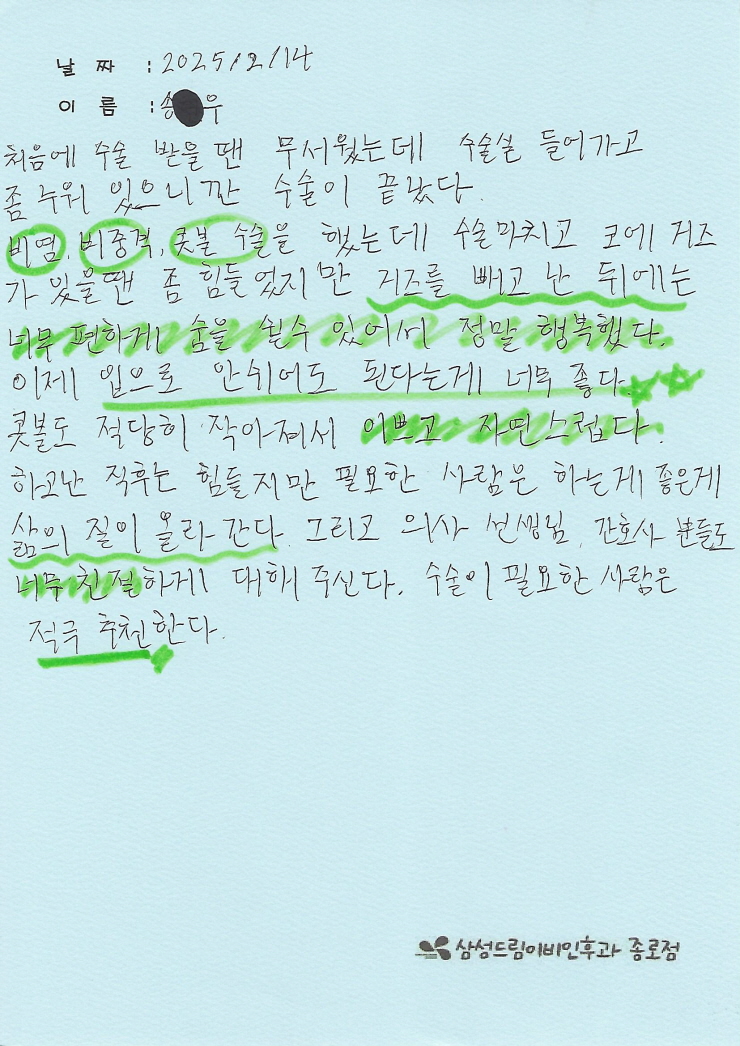 날 짜 : 2025/2/14
이 름 : 송 우
처음에 수술 받을 땐 무서웠는데 수술실 들어가고
좀 누워 있으니깐 수술이 끝났다.
비염, 비중격, 콧볼 수술을 했는데 수술마치고 코에 거즈
가 있을땐 좀 힘들었지만 거즈를 빼고 난 뒤에는
너무 편하게 숨을 쉴수 있어서 정말 행복했다.
이제 입으로 안쉬어도 된다는게 너무 좋다.
콧볼도 적당히 작아져서 이쁘고 자연스럽다.
하고난 직후는 힘들지만 필요한 사람은 하는게 좋은게
삶의 질이 올라 간다. 그리고 의사 선생님, 간호사 분들도
너무 친절하게 대해 주신다. 수술이 필요한 사람은
적극 추천한다.
삼성드림이비인후과 종로점